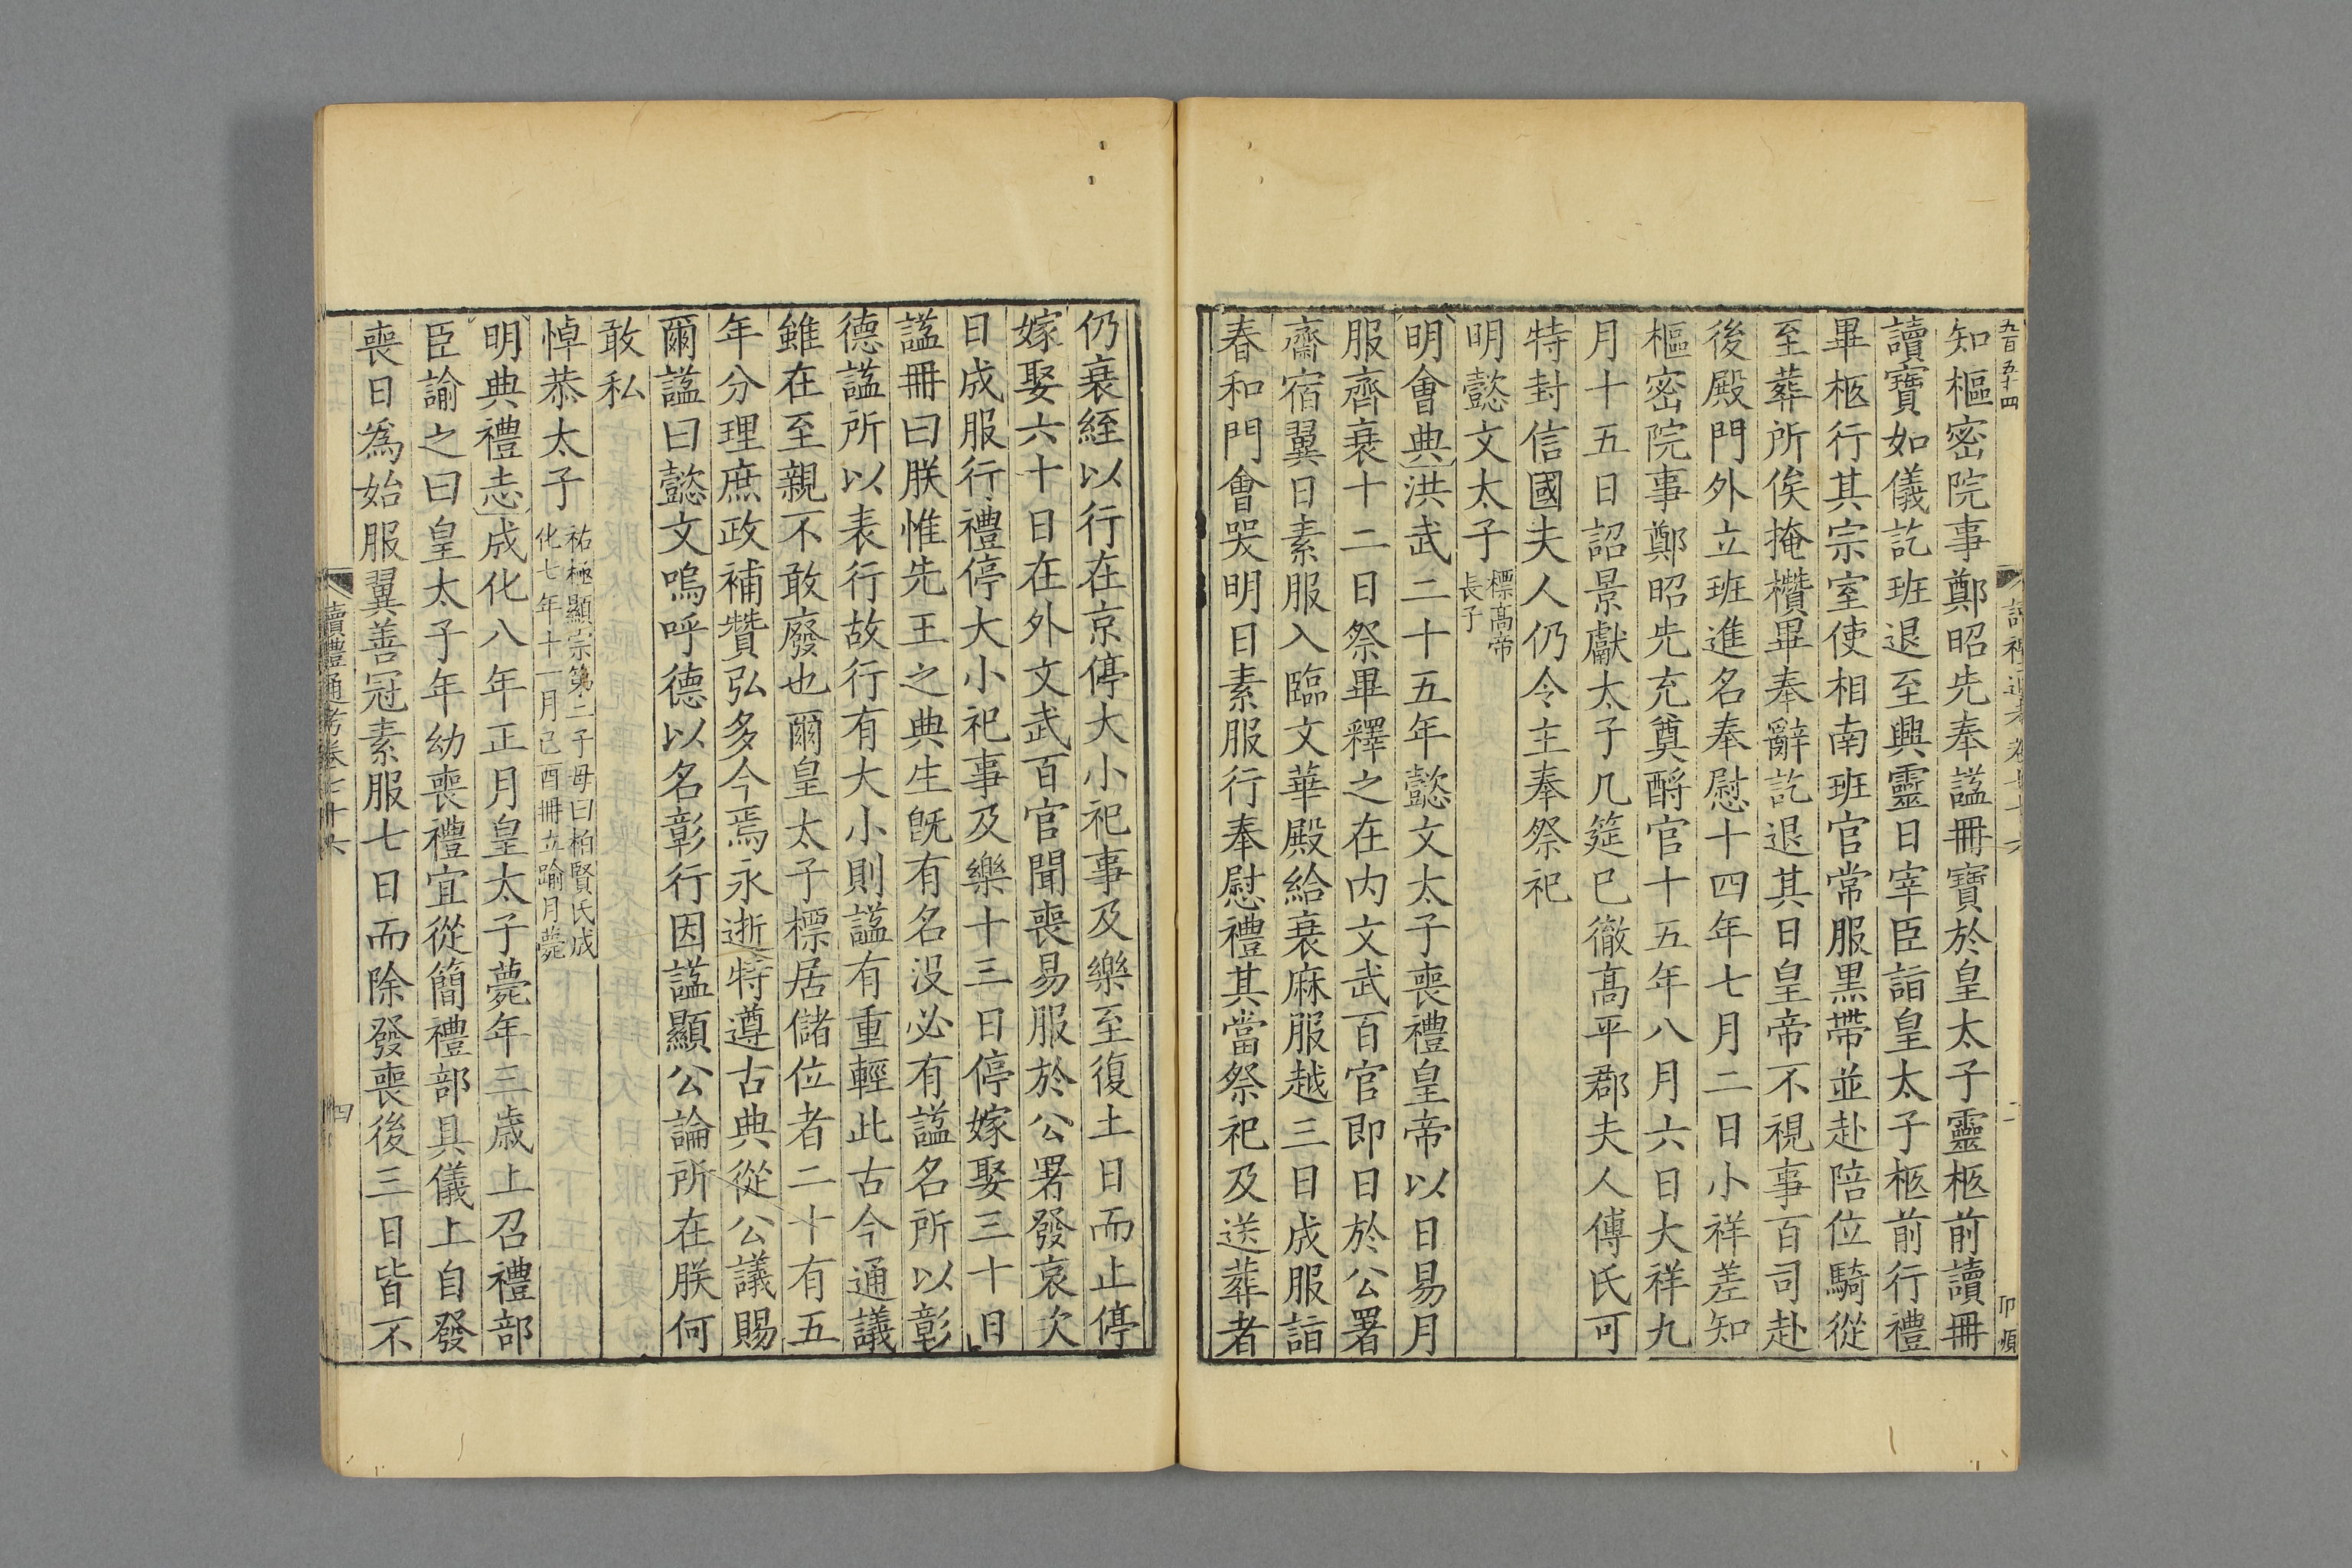 九百五十四
知樞密院事鄭昭先奉謚冊寶於皇太子靈柩前讀冊
讀寶如儀訖班退至興靈日宰臣詣皇太子柩前行禮
畢柩行其宗室使相南班官常服黒帶並赴陪位騎從
至葬所俟掩欑畢奉辭訖退其日皇帝不視事百司赴
後殿門外立班進名奉慰十四年七月二日小祥差知
樞密院事鄭昭先充奠酹官十五年八月六日大祥九
月十五日詔景獻太子几筵已徹髙平郡夫人傅氏可
特封信國夫人仍令主奉祭祀
明懿文太子標髙帝長子
明會典洪武二十五年懿文太子喪禮皇帝以日易月
服齊衰十二日祭畢釋之在内文武百官即日於公署
齋宿翼日素服入臨文華殿給衰麻服越三日成服詣
春和門會哭明日素服行奉慰禮其當祭祀及送葬者
仍衰絰以行在京停大小祀事及樂至復土日而止停
嫁娶六十日在外文武百官聞喪易服於公署發哀次
日成服行禮停大小祀事及樂十三日停嫁娶三十日
謚冊曰朕惟先王之典生既有名没必有謚名所以彰
德謚所以表行故行有大小則謚有重輕此古今通議
雖在至親不敢廢也爾皇太子標居儲位者二十有五
年分理庶政補贊弘多今焉永逝特遵古典從公議賜
爾謚曰懿文嗚呼德以名彰行因謚顯公論所在朕何
敢私
悼恭太子祐極顯宗第二子母曰柏賢氏成化七年十一月己酉冊立踰月薨
明典禮志成化八年正月皇太子薨年三歳上召禮部
臣諭之曰皇太子年幼喪禮宜從簡禮部具儀上自發
喪日為始服翼善冠素服七日而除發喪後三日皆不
讀禮通考卷七十六
四